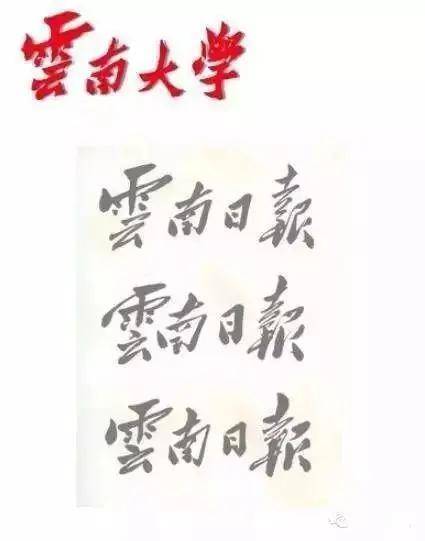 雲南大學
雲南日報
雲南日報
雲南日報